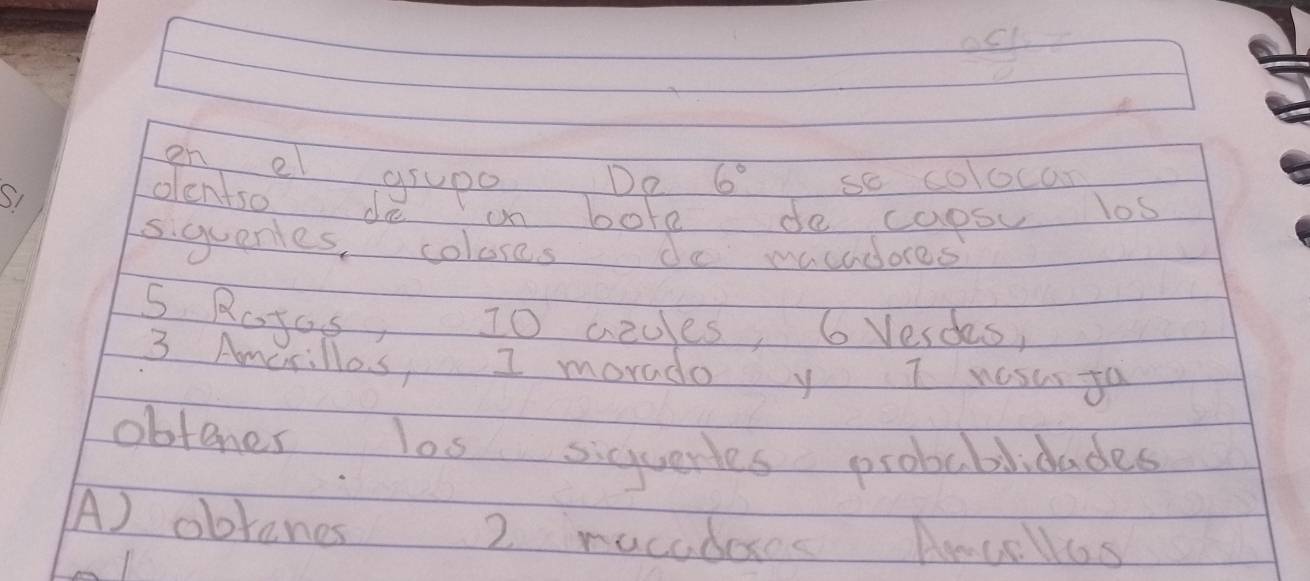 en el grupo De 6° se colocan
dentro de un bote de capsu los
siguentes, colores de macadores
5 Rojos, 10 azules, 6 Verdes,
3 Amarillos, 1 morado y 1 naranja
obtener los siguentes probablidades
A) obtener 2 macadores Amarillos